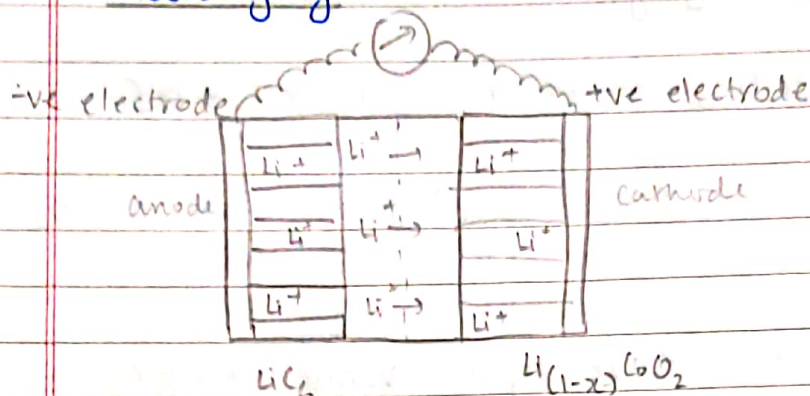 -ve electrode
+ve electrode
Li+
Li+
Li+
anode
Li+
Li+
Li+
cathode
Li+
Li+
Li+
Li(1-x)CoO2